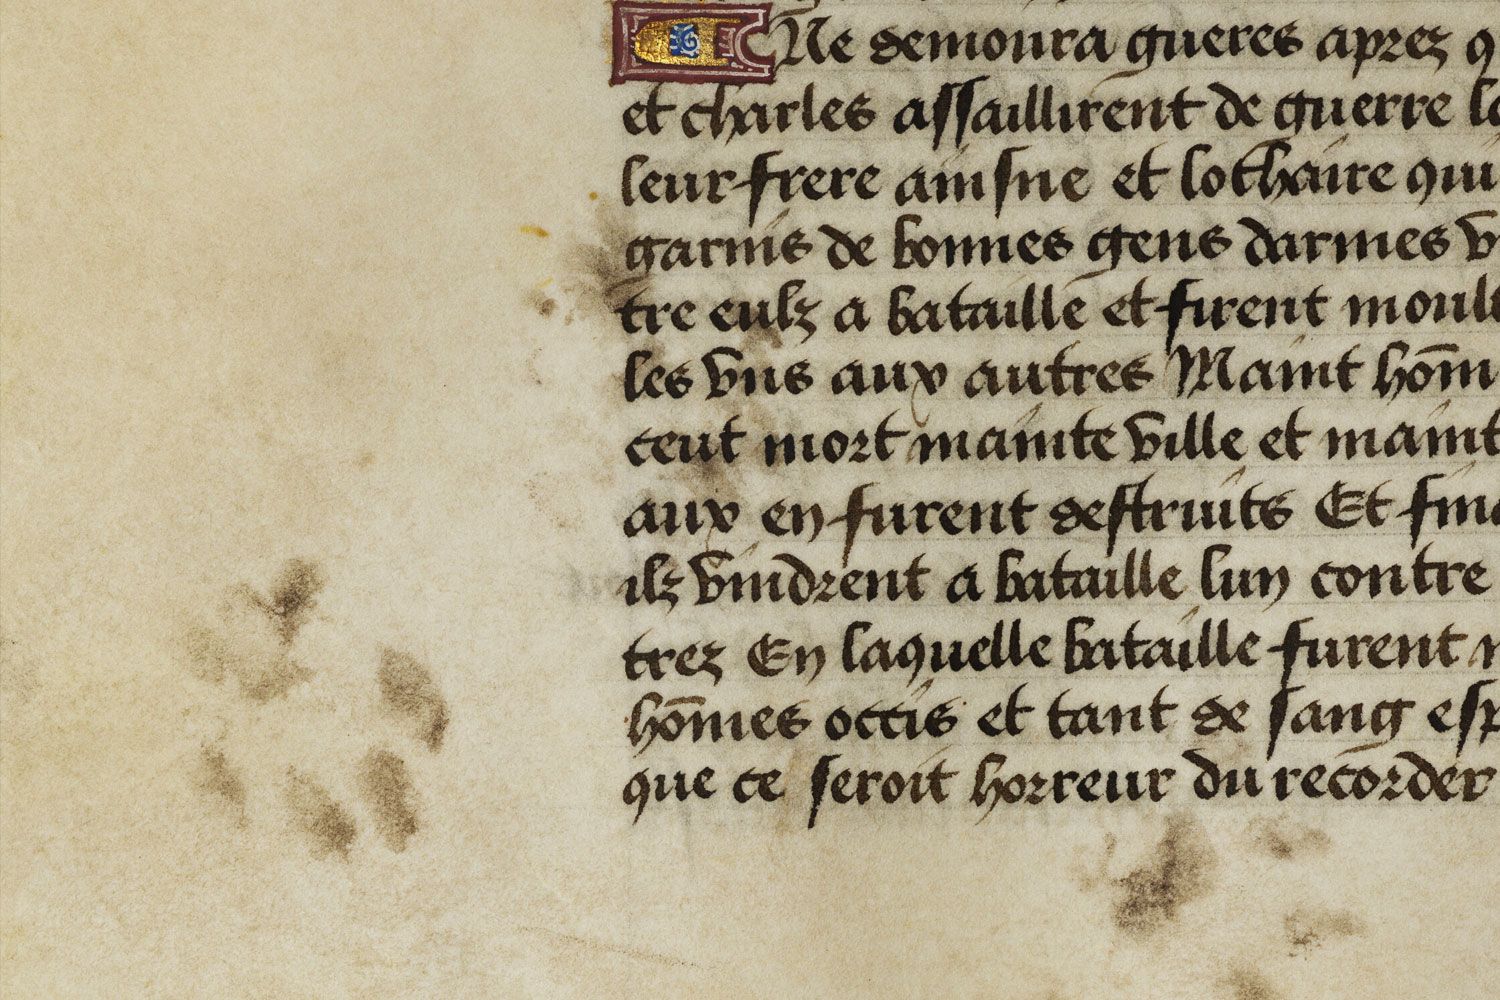 Ne demoura gueres aprez q
et charles assaillirent de guerre
leur frere ainsne et lothaire qui
garnis de bonnes gens darmes
tre eulz a bataille et firent moult
les vns aux autres Maint hōm
ceut mort mainte ville et maint
aux en furent destruits Et fina
ilz vindrent a bataille lun contre
trez En laquelle bataille furent
hōmes occis et tant de sang esp
que ce seroit horreur du recorder